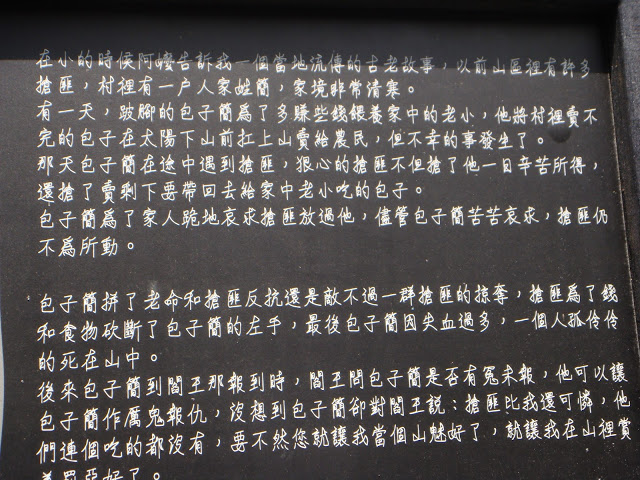 在小的時侯阿嬤告訴我一個當地流傳的古老故事，以前山區裡有許多
搶匪，村裡有一户人家姓簡，家境非常清寒。
有一天，跛腳的包子簡為了多賺些錢餵養家中的老小，他將村裡賣不
完的包子在太陽下山前扛上山賣給農民，但不幸的事發生了。
那天包子簡在途中遇到搶匪，狠心的搶匪不但搶了他一日辛苦所得，
還搶了賣剩下要帶回去給家中老小吃的包子。
包子簡為了家人跪地哀求搶匪放過他，儘管包子簡苦苦哀求，搶匪仍
不為所動。
包子簡拼了老命和搶匪反抗還是敵不過一群搶匪的掠奪，搶匪為了錢
和食物砍斷了包子簡的左手，最後包子簡因失血過多，一個人孤伶伶
的死在山中。
後來包子簡到閻王那報到時，閻王問包子簡是否有冤未報，他可以讓
包子簡作厲鬼報仇，沒想到包子簡卻對閻王說：搶匪比我還可憐，他
們連個吃的都沒有，要不然您就讓我當個山魅好了，就讓我在山裡賞
善罰惡好了。